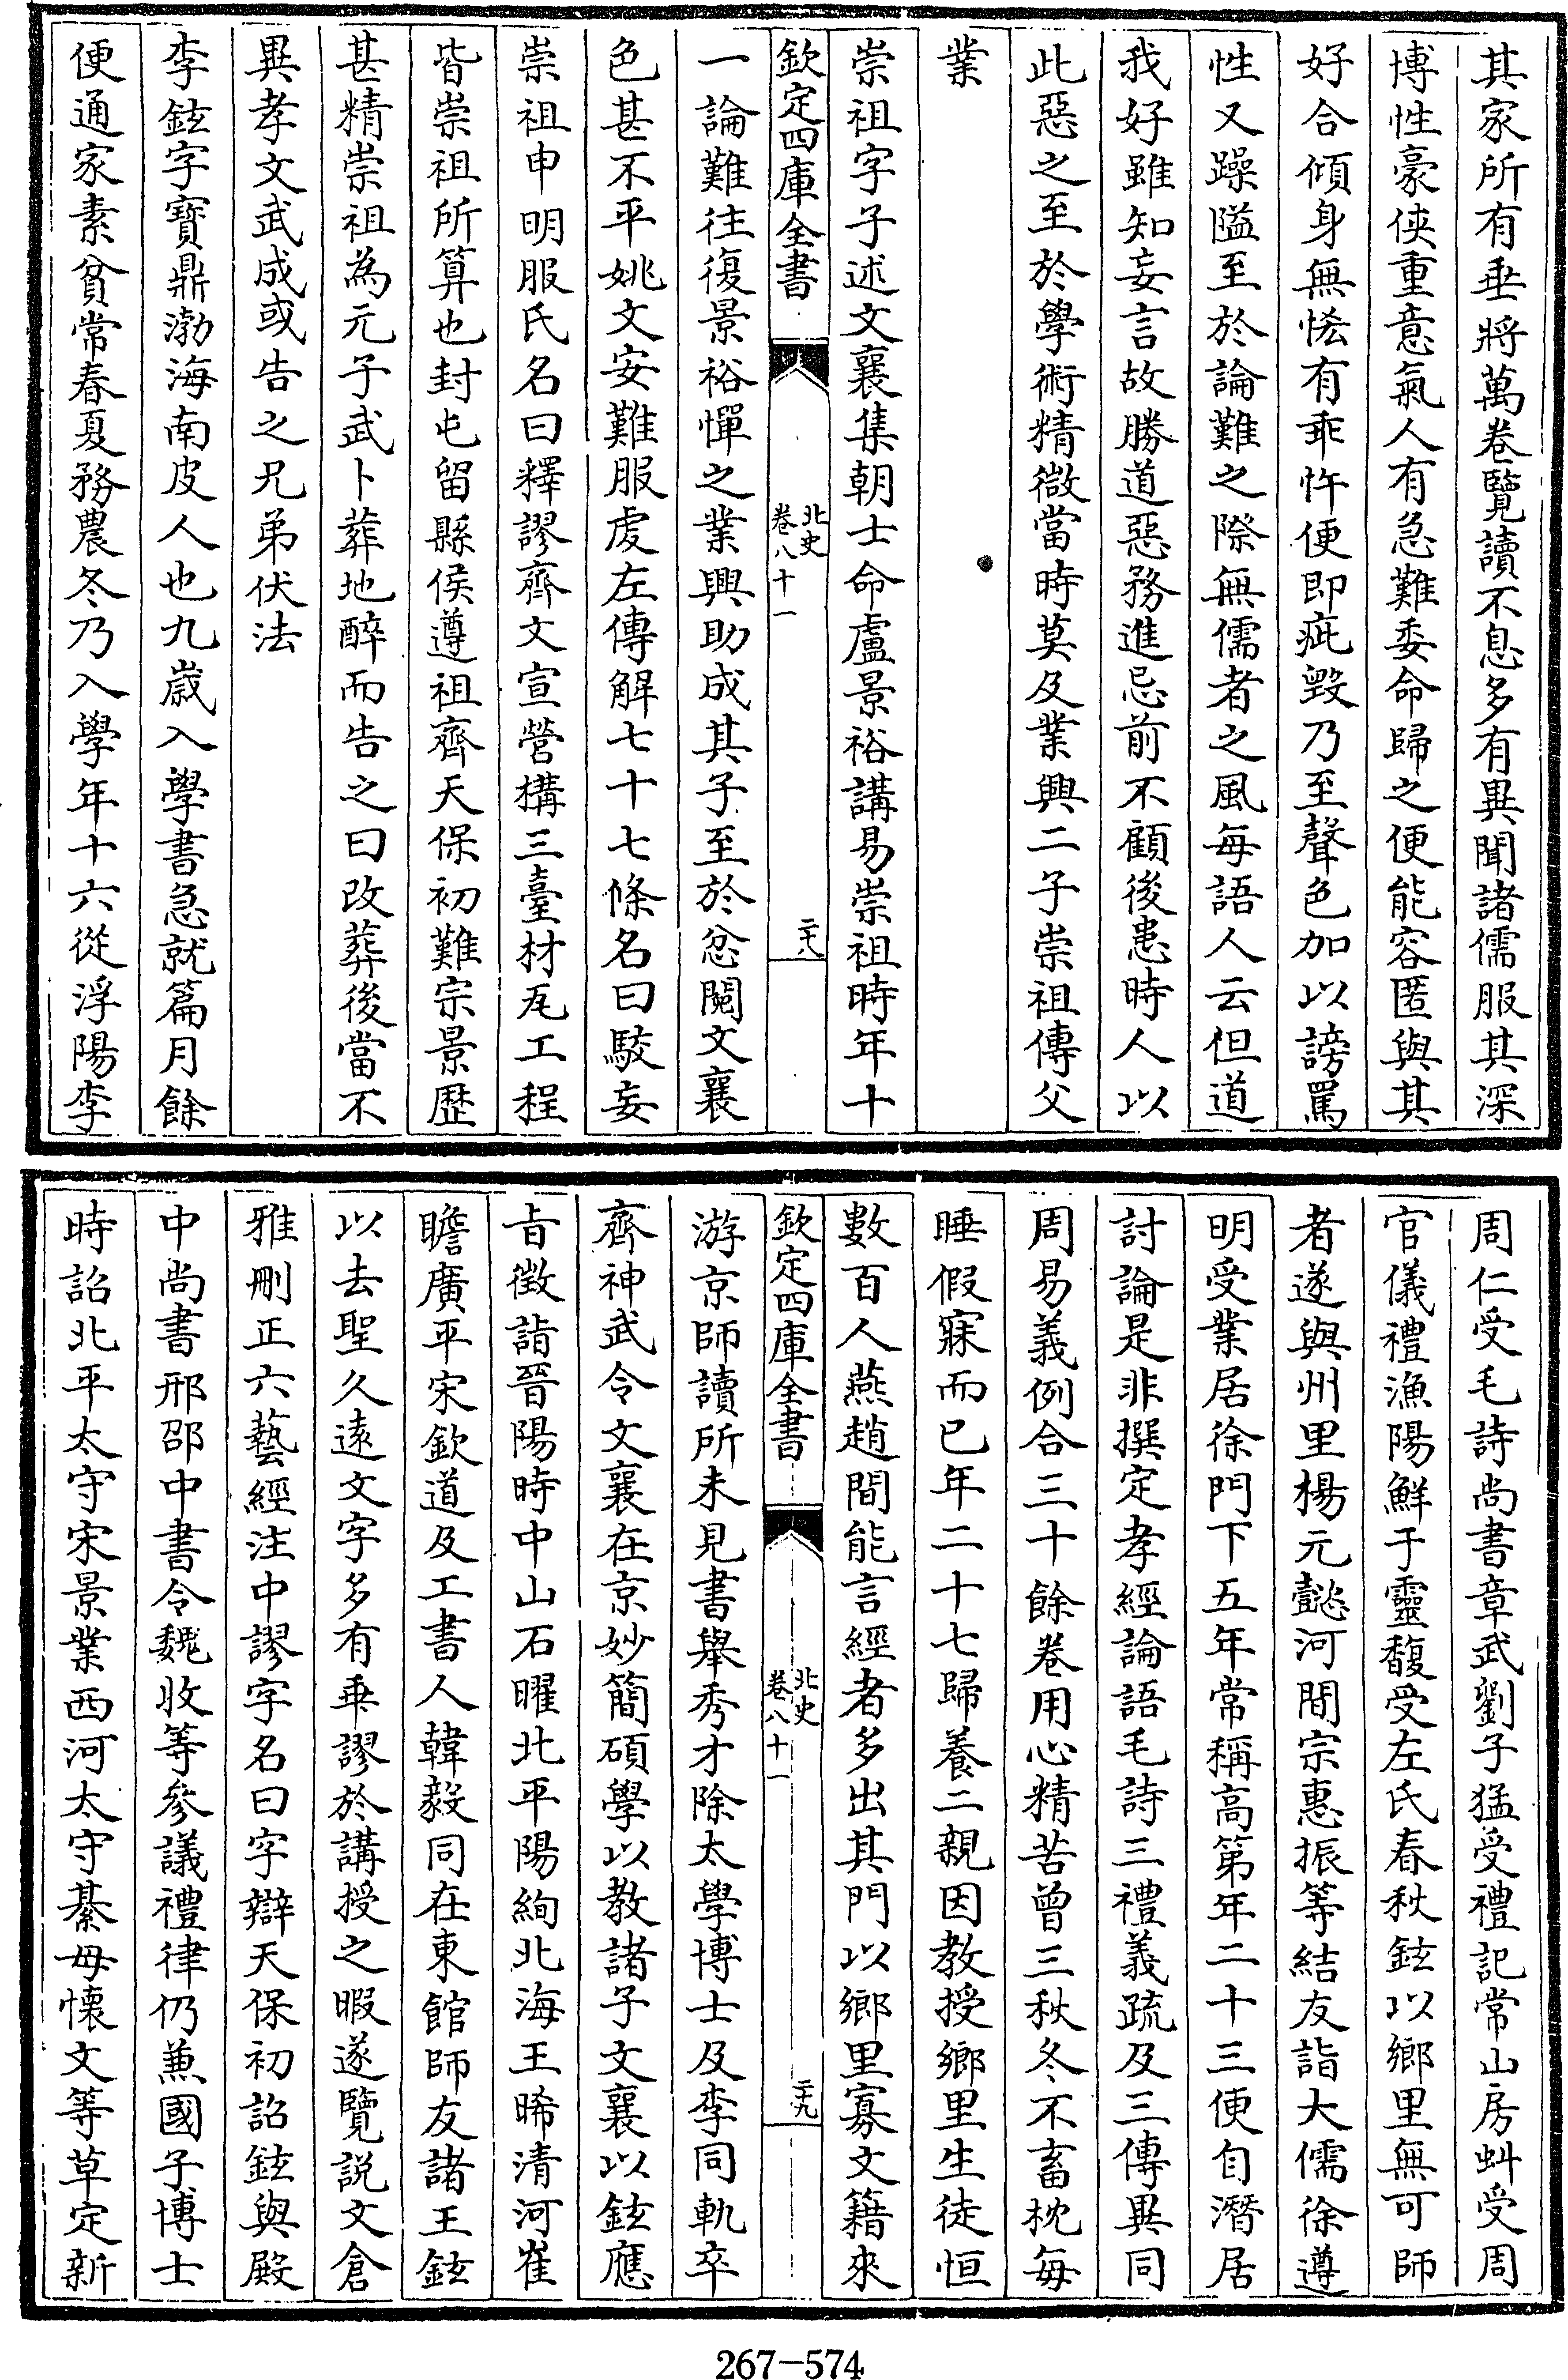 其家所有垂將萬卷覽讀不息多有異聞諸儒服其深
博性豪俠重意氣人有急難委命歸之便能容匿與其
好合傾身無悋有乖忤便即疵毀乃至聲色加以謗罵
性又躁隘至於論難之際無儒者之風每語人云但道
我好雖知妄言故勝道惡務進忌前不顧後患時人以
此惡之至於學術精微當時莫及業興二子崇祖傳父
業
崇祖字子述文襄集朝士命盧景裕講易崇祖時年十
欽定四庫全書
北史
卷八十一
二十八
一論難往復景裕憚之業興助成其子至於忿鬩文襄
色甚不平姚文安難服虔左傳解七十七條名曰駮妄
崇祖申明服氏名曰釋謬齊文宣營構三臺材瓦工程
皆崇祖所算也封屯留縣侯遵祖齊天保初難宗景歷
甚精崇祖為元子武卜葬地醉而告之曰改葬後當不
異孝文武成或告之兄弟伏法
李鉉字寶鼎渤海南皮人也九歲入學書急就篇月餘
便通家素貧常春夏務農冬乃入學年十六從浮陽李
周仁受毛詩尚書章武劉子猛受禮記常山房虯受周
官儀禮漁陽鮮于靈馥受左氏春秋鉉以鄉里無可師
者遂與州里楊元懿河間宗惠振等結友詣大儒徐遵
明受業居徐門下五年常稱高第年二十三便自潛居
討論是非撰定孝經論語毛詩三禮義疏及三傳異同
周易義例合三十餘卷用心精苦曾三秋冬不畜枕每
睡假寐而已年二十七歸養二親因教授鄉里生徒恒
數百人燕趙間能言經者多出其門以鄉里寡文籍來
欽定四庫全書
北史
卷八十一
二十九
游京師讀所未見書舉秀才除太學博士及李同軌卒
齊神武令文襄在京妙簡碩學以教諸子文襄以鉉應
旨徵詣晉陽時中山石曜北平陽絢北海王晞清河崔
瞻廣平宋欽道及工書人韓毅同在東館師友諸王鉉
以去聖久遠文字多有乖謬於講授之暇遂覽說文倉
雅刪正六藝經注中謬字名曰字辯天保初詔鉉與殿
中尚書邢邵中書令魏收等參議禮律仍兼國子博士
時詔北平太守宋景業西河太守綦毋懷文等草定新
267-574